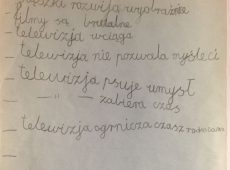 książki rozwija wyobraźnie
filmy są brutalne
- telewizja wciąga
- telewizja nie pozwala myśleci
- telewizja psuje umysł
- —"— zabiera czas
- telewizja ogranicza czasz rodzicami